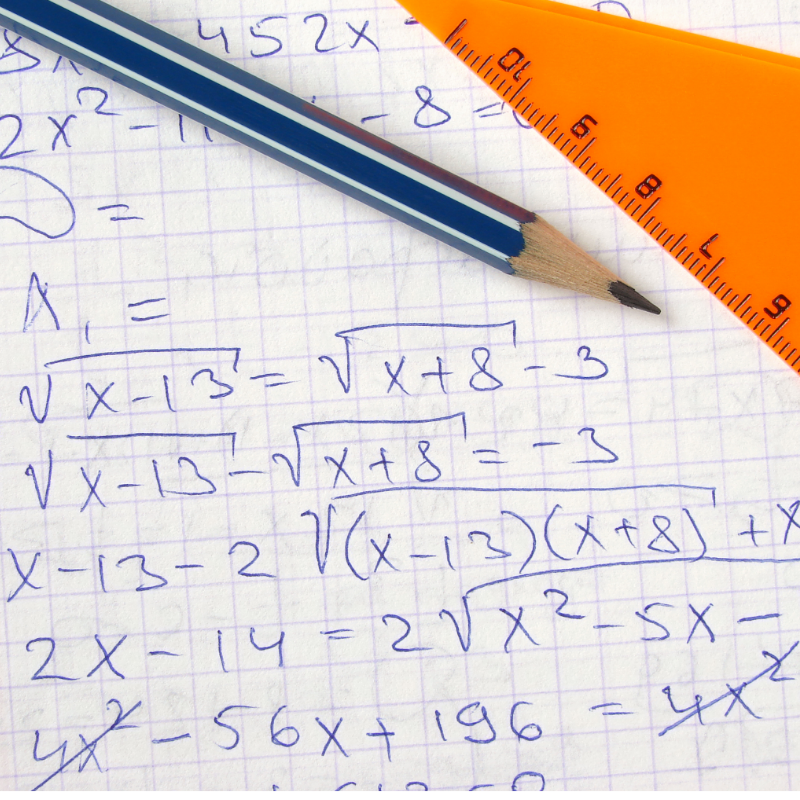 452x
2x² - 11 - 8 =
D =
X₁ =
√(x-13) = √(x+8) - 3
√(x-13) - √(x+8) = -3
x-13-2 √((x-13)(x+8)) + x
2x - 14 = 2√(x² - 5x -
4x² - 56x + 196 = 4x²
10
9
8
7
6